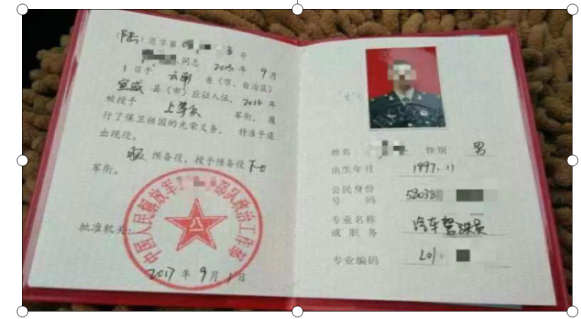 (陆)退字第 号
同志 2015 年 9 月
1 日于 云南 省(市、自治区)
宣威 县(市)应征入伍, 2016 年
被授予 上等兵 军衔, 履
行了保卫祖国的光荣义务, 特准予退
出现役。
服 预备役, 授予预备役 下士
军衔。
批准机关
中国人民解放军 部队政治工作部
2017 年 9 月 1 日
姓名 性别 男
出生年月 1997.11
公民身份
号 码 53038
专业名称
或 职 务 汽车驾驶员
专业编码